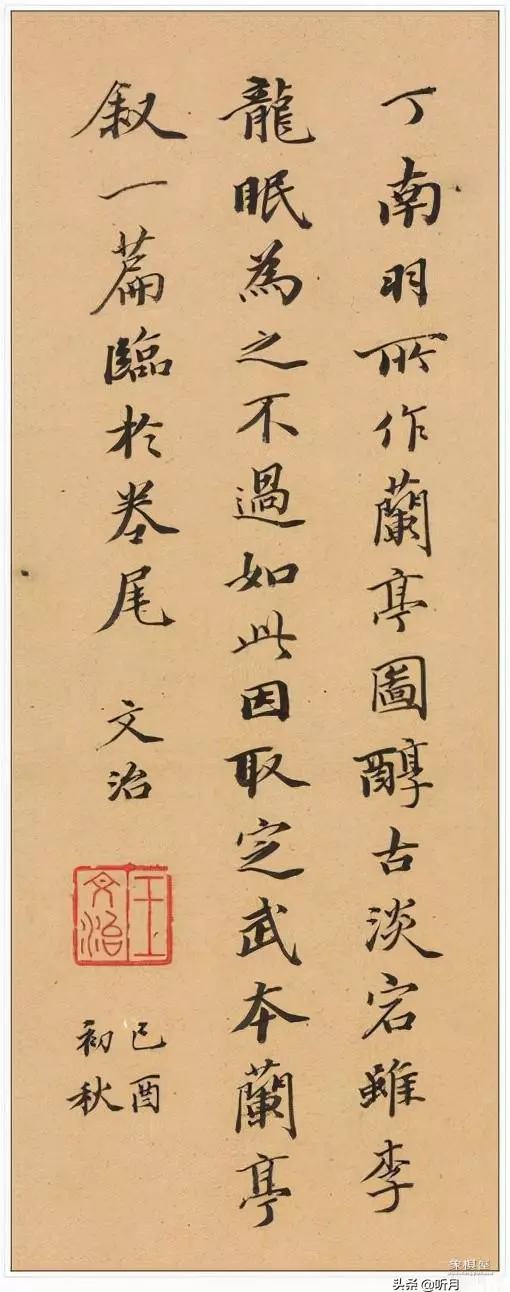 丁南羽所作蘭亭圖醇古淡宕雖李
龍眠為之不過如此因取定武本蘭亭
叙一篇臨於卷尾 文治
王文治
己酉
初秋
头条 @听月